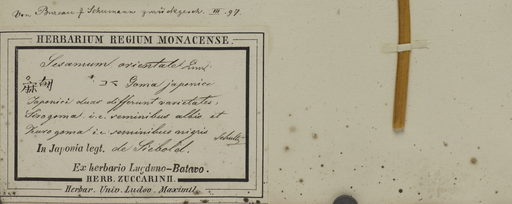 Von Brazau f Schumann zurückgesch. III. 97.
HERBARIUM REGIUM MONACENSE.
Sesamum orientale Linn.
胡麻 * コマ Goma japonice
Japonici duas differunt varietates,
Sirogoma i.e. seminibus albis et
Kurogoma i.e. seminibus nigris
Schultz
In Japonia legt. de Siebold.
Ex herbario Lugduno-Batavo.
HERB. ZUCCARINII.
Herbar. Univ. Ludov. Maximil.